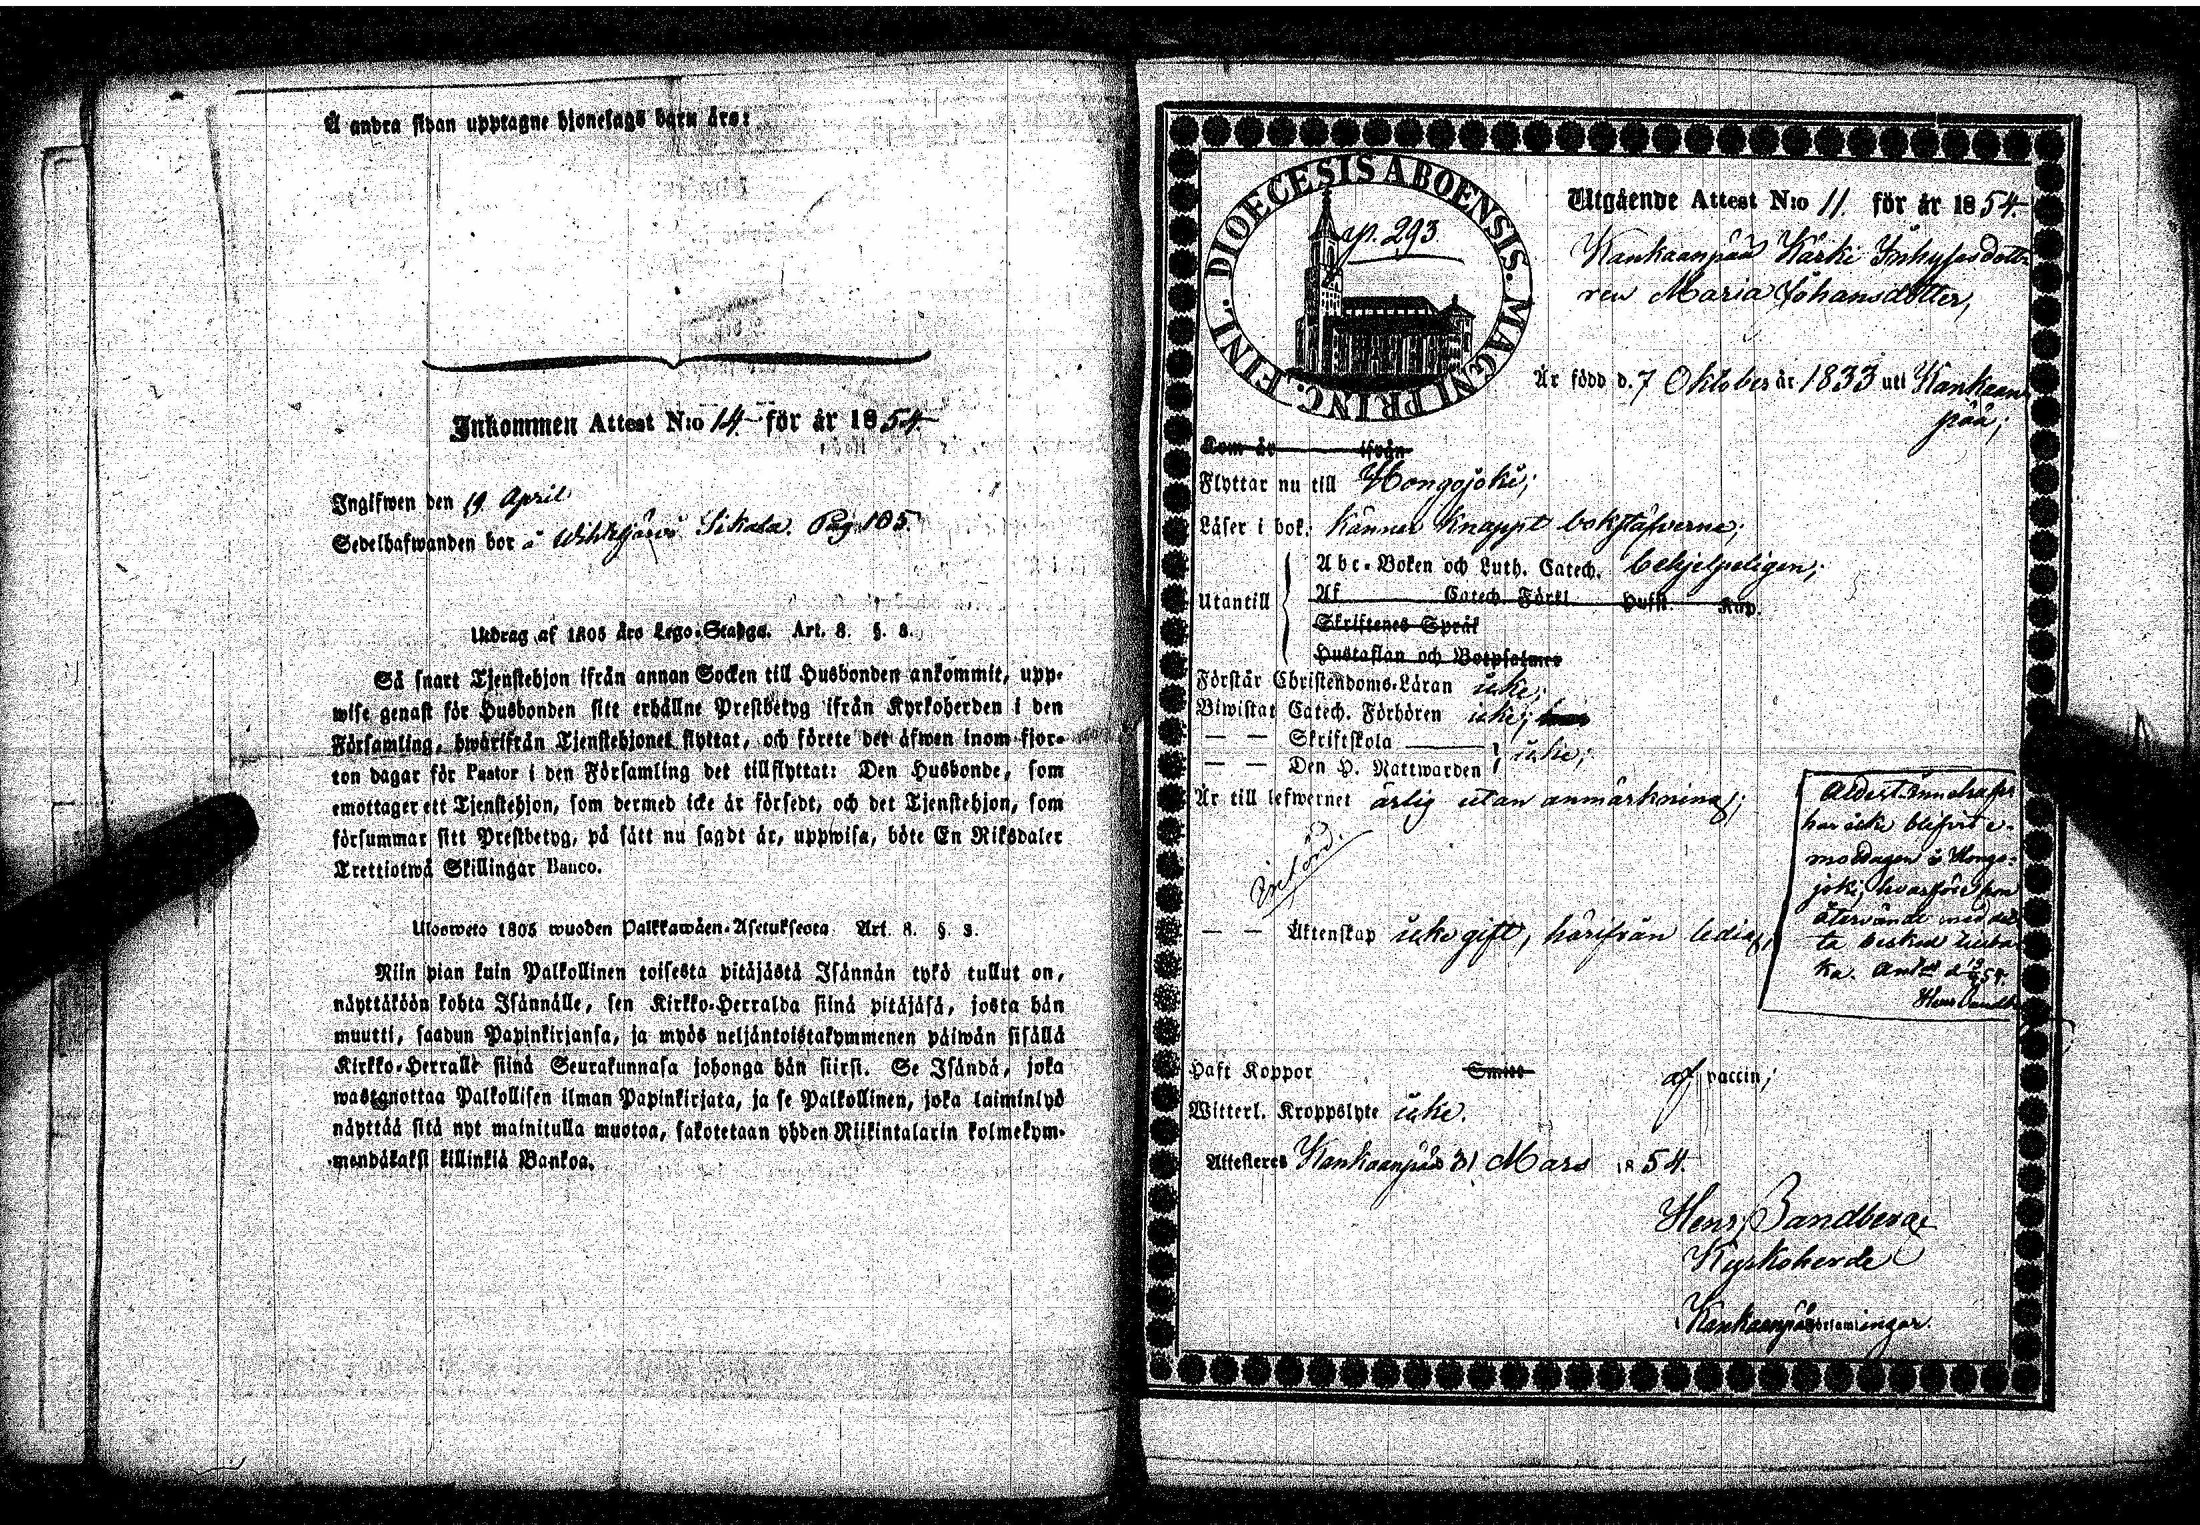 Å andra sidan upptagne hjonelags barn äro:
Inkommen Attest N:o 14 för år 1854
Ingifwen den 19 April
Sedelhafwanden bor å Sikala. Pag 105
Utdrag af 1805 års Lego-Stadga. Art. 8. §. 8.
Så snart Tjenstehjon ifrån annan Socken till Husbonden ankommit, upp-
wise genast för Husbonden sitt erhållne Prestbetyg ifrån Kyrkoherden i den
Församling, hwarifrån Tjenstehjonet flyttat, och förete det äfwen inom fjor-
ton dagar för Pastor i den Församling det tillflyttat: Den Husbonde, som
emottager ett Tjenstehjon, som dermed icke är försedt, och det Tjenstehjon, som
försummar sitt Prestbetyg, på sätt nu sagdt är, uppwisa, böte En Riksdaler
Trettiotwå Skillingar Banco.
Ulosweto 1805 wuoden Palkkawäen-Asetuksesta Art. 8. § 8.
Niin pian kuin Palkollinen toisesta pitäjästä Isännän tykö tullut on,
näyttäköön kohta Isännälle, sen Kirkko-Herralda siinä pitäjäsä, josta hän
muutti, saadun Papinkirjansa, ja myös neljäntoistakymmenen päiwän sisällä
Kirkko-Herralle siinä Seurakunnasa johonga hän siirsi. Se Isändä, joka
wastanottaa Palkollisen ilman Papinkirjata, ja se Palkollinen, joka laiminlyö
näyttää sitä nyt mainitulla muotoa, sakotetaan yhden Riikintalarin kolmekym-
mendäkaksi killinkiä Bankoa.
DIOECESIS ABOENSIS. MAGNI PRINC. FINL.
p. 293
Utgående Attest N:o 11. för år 1854
Kankaanpää Kärki Inhysesdott-
ren Maria Johansdotter,
Är född d. 7 Oktober år 1833 uti Kankaan-
pää;
Kom år ifrån
Flyttar nu till Hongojoki;
Läser i bok: känner knappt bokstäfverne;
Utantill
Abc-Boken och Luth. Catech. behjelpeligen;
Af Catech Förkl. Hufst. Kap.
Skriftenes Språk
Hustaflan och Botpsalmer
Förstår Christendoms-Läran icke;
Biwistat Catech. Förhören icke;
— — Skriftskola
— — Den H. Nattwarden } icke;
Är till lefwernet ärlig utan anmärkning;
Införd.
— — Äktenskap icke gift, härifrån ledig;
Attest. Innehafv
har icke blifvit e-
mottagen i Hongo-
joki, hvarföre hon
återvände med det-
ta besked tillba-
ka.
Haft Koppor Smitt af vaccin;
Witterl. Kroppslyte icke.
Attesteres Kankaanpää 31 Mars 1854.
Henr. Sandberg
Kyrkoherde
Kankaanpää Församlingar.